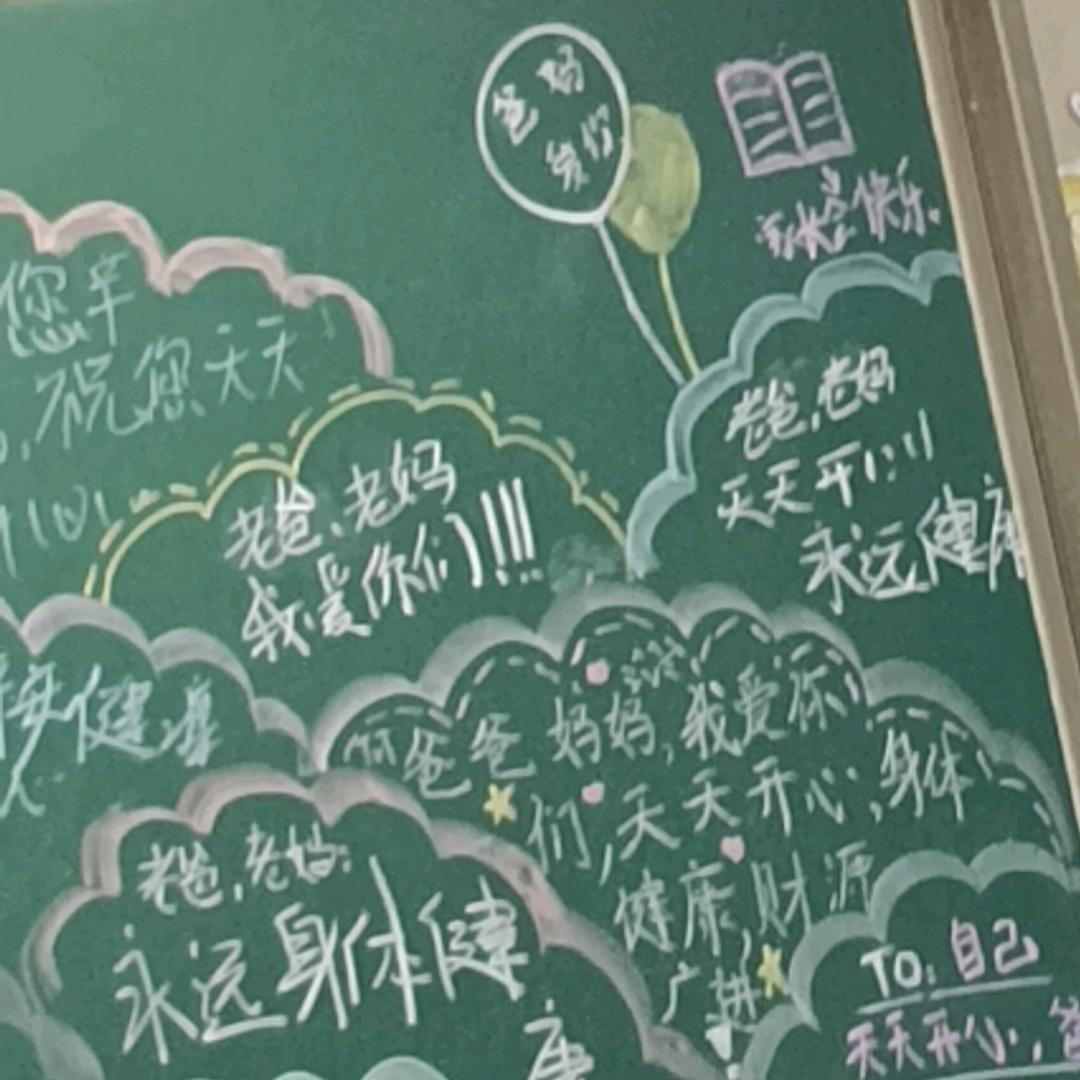 爸妈
爱你
快乐
您辛
祝您天天
老爸、老妈
我爱你们!!!
老爸,老妈
天天开心!!
永远健康
健康
爸爸妈妈,我爱你
们,天天开心,身体
健康,财源
广进
老爸,老妈:
永远身体健
康
TO:自己
天天开心,